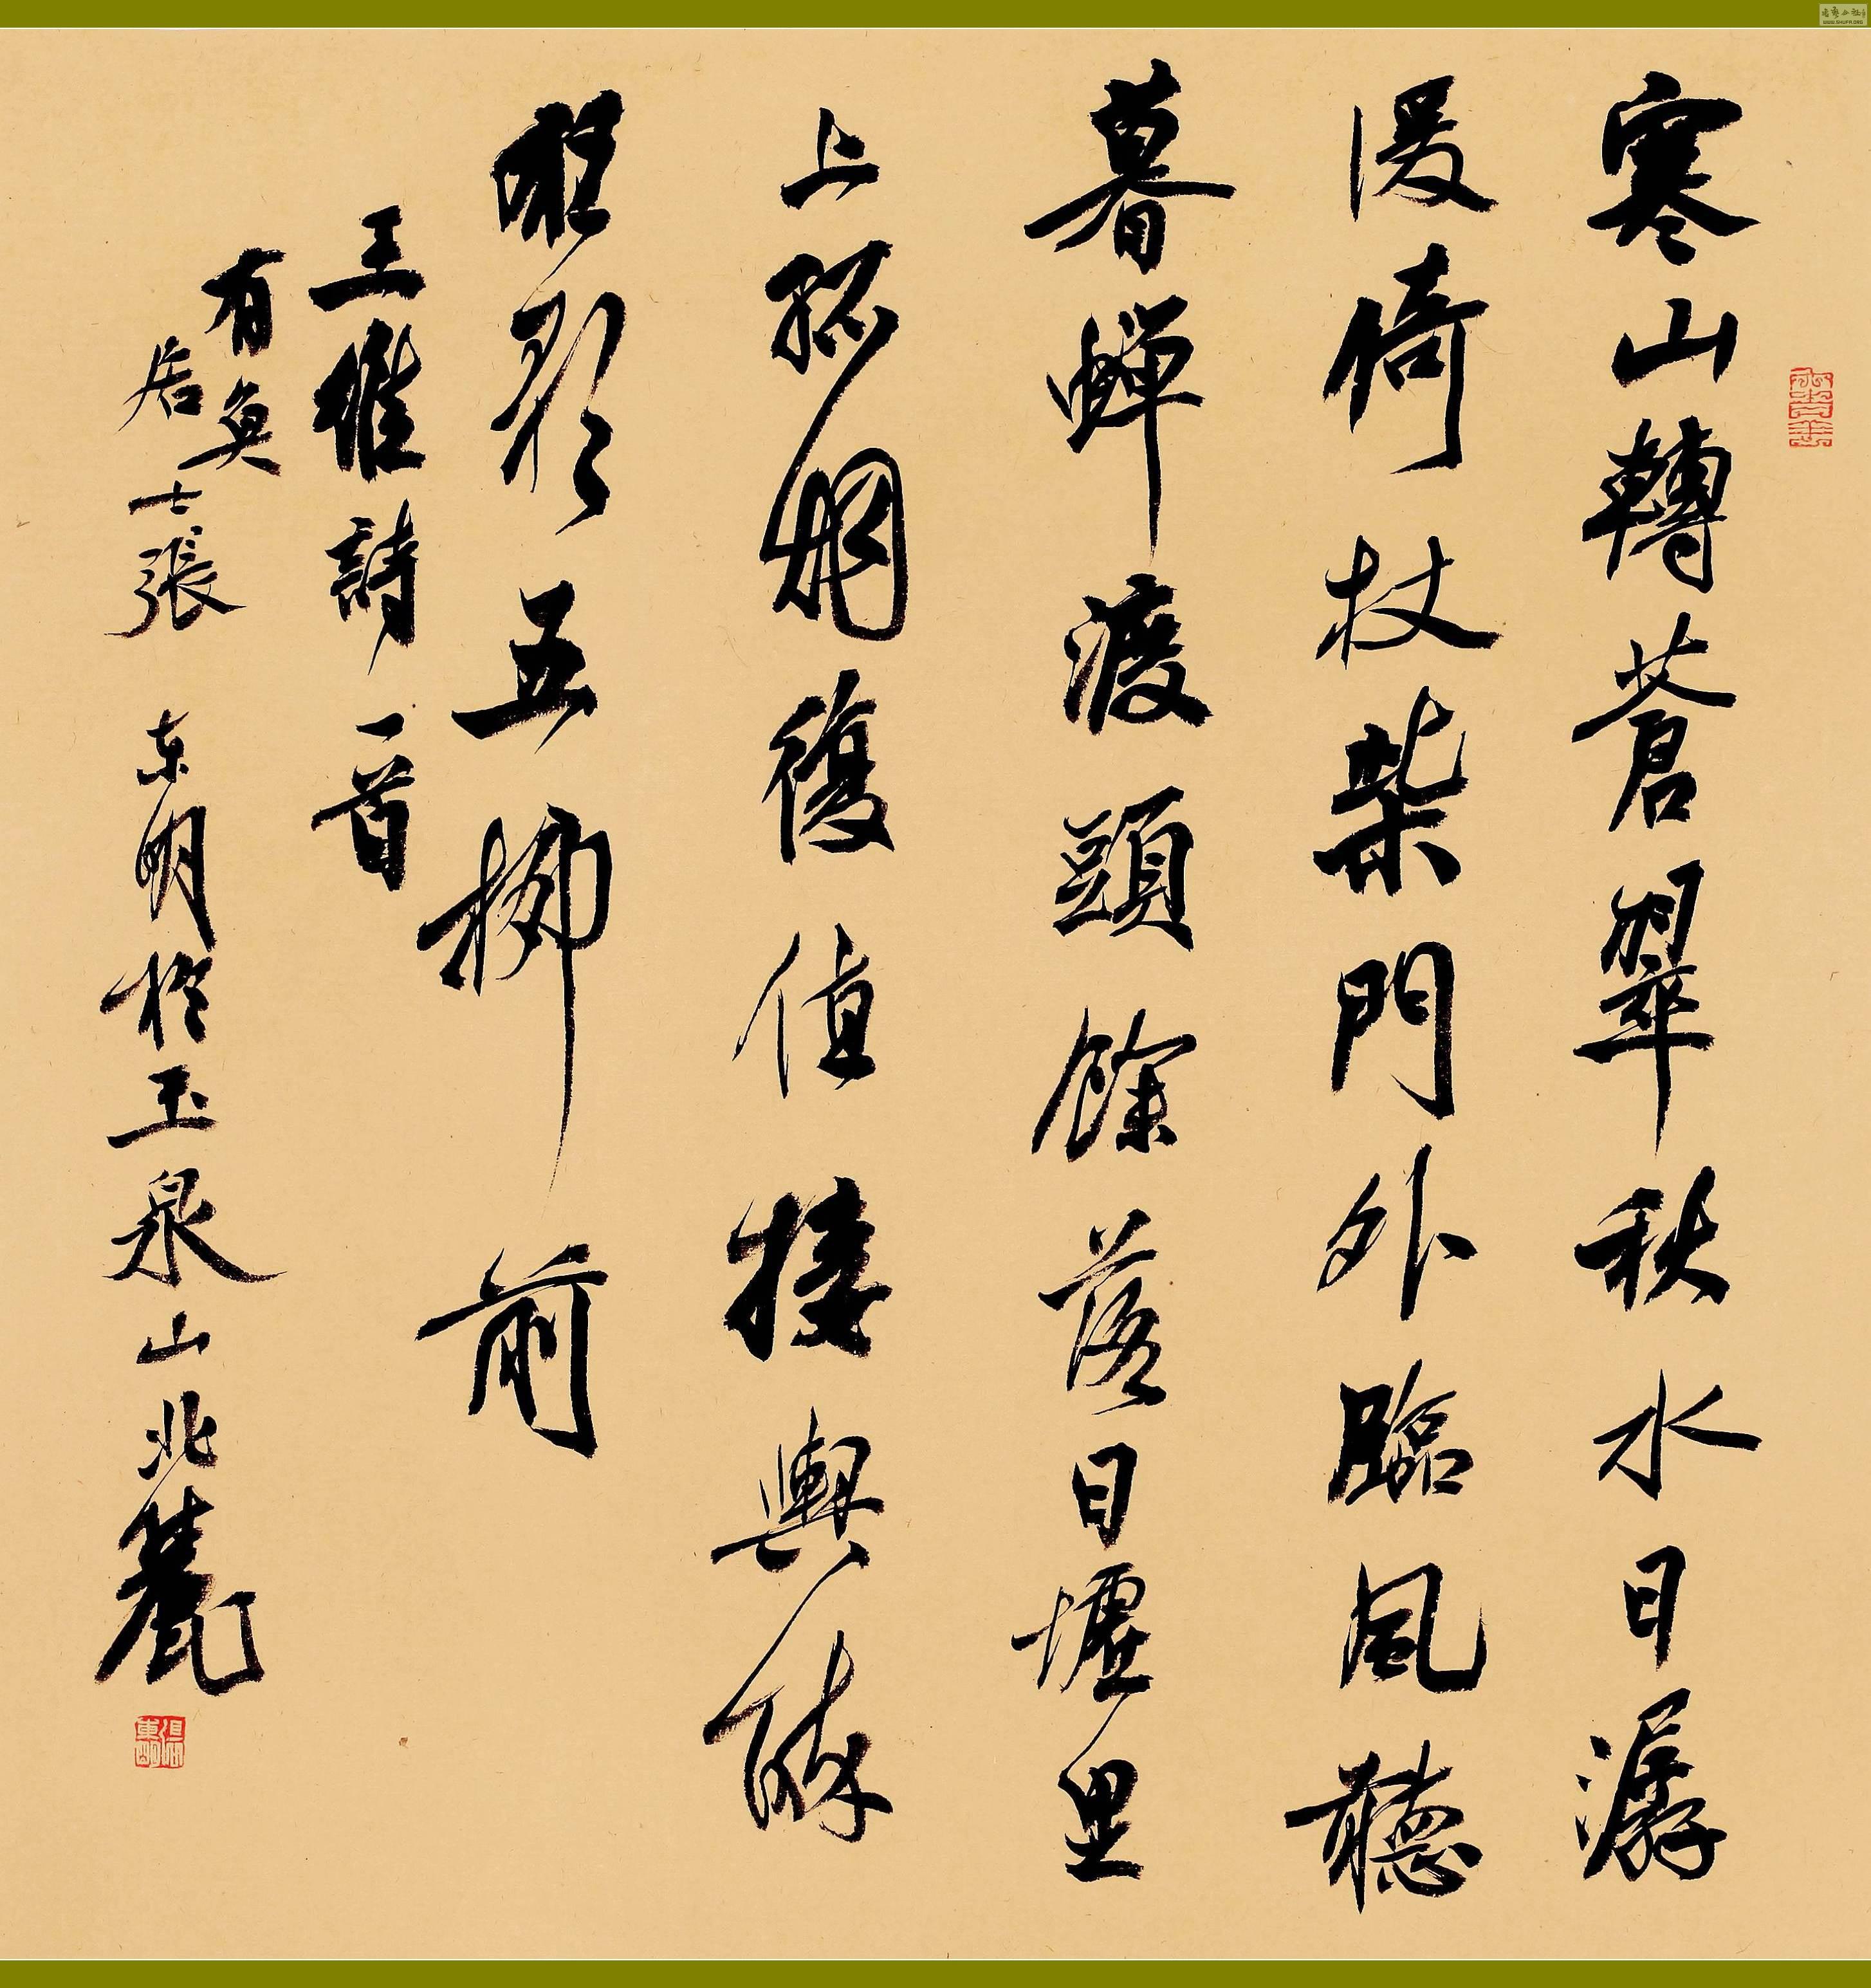 寒山轉蒼翠秋水日潺
湲倚杖柴門外臨風聽
暮蟬渡頭餘落日墟里
上孤烟復值接輿醉
狂歌五柳前
王維詩一首
有居士張东明於玉泉山北麓